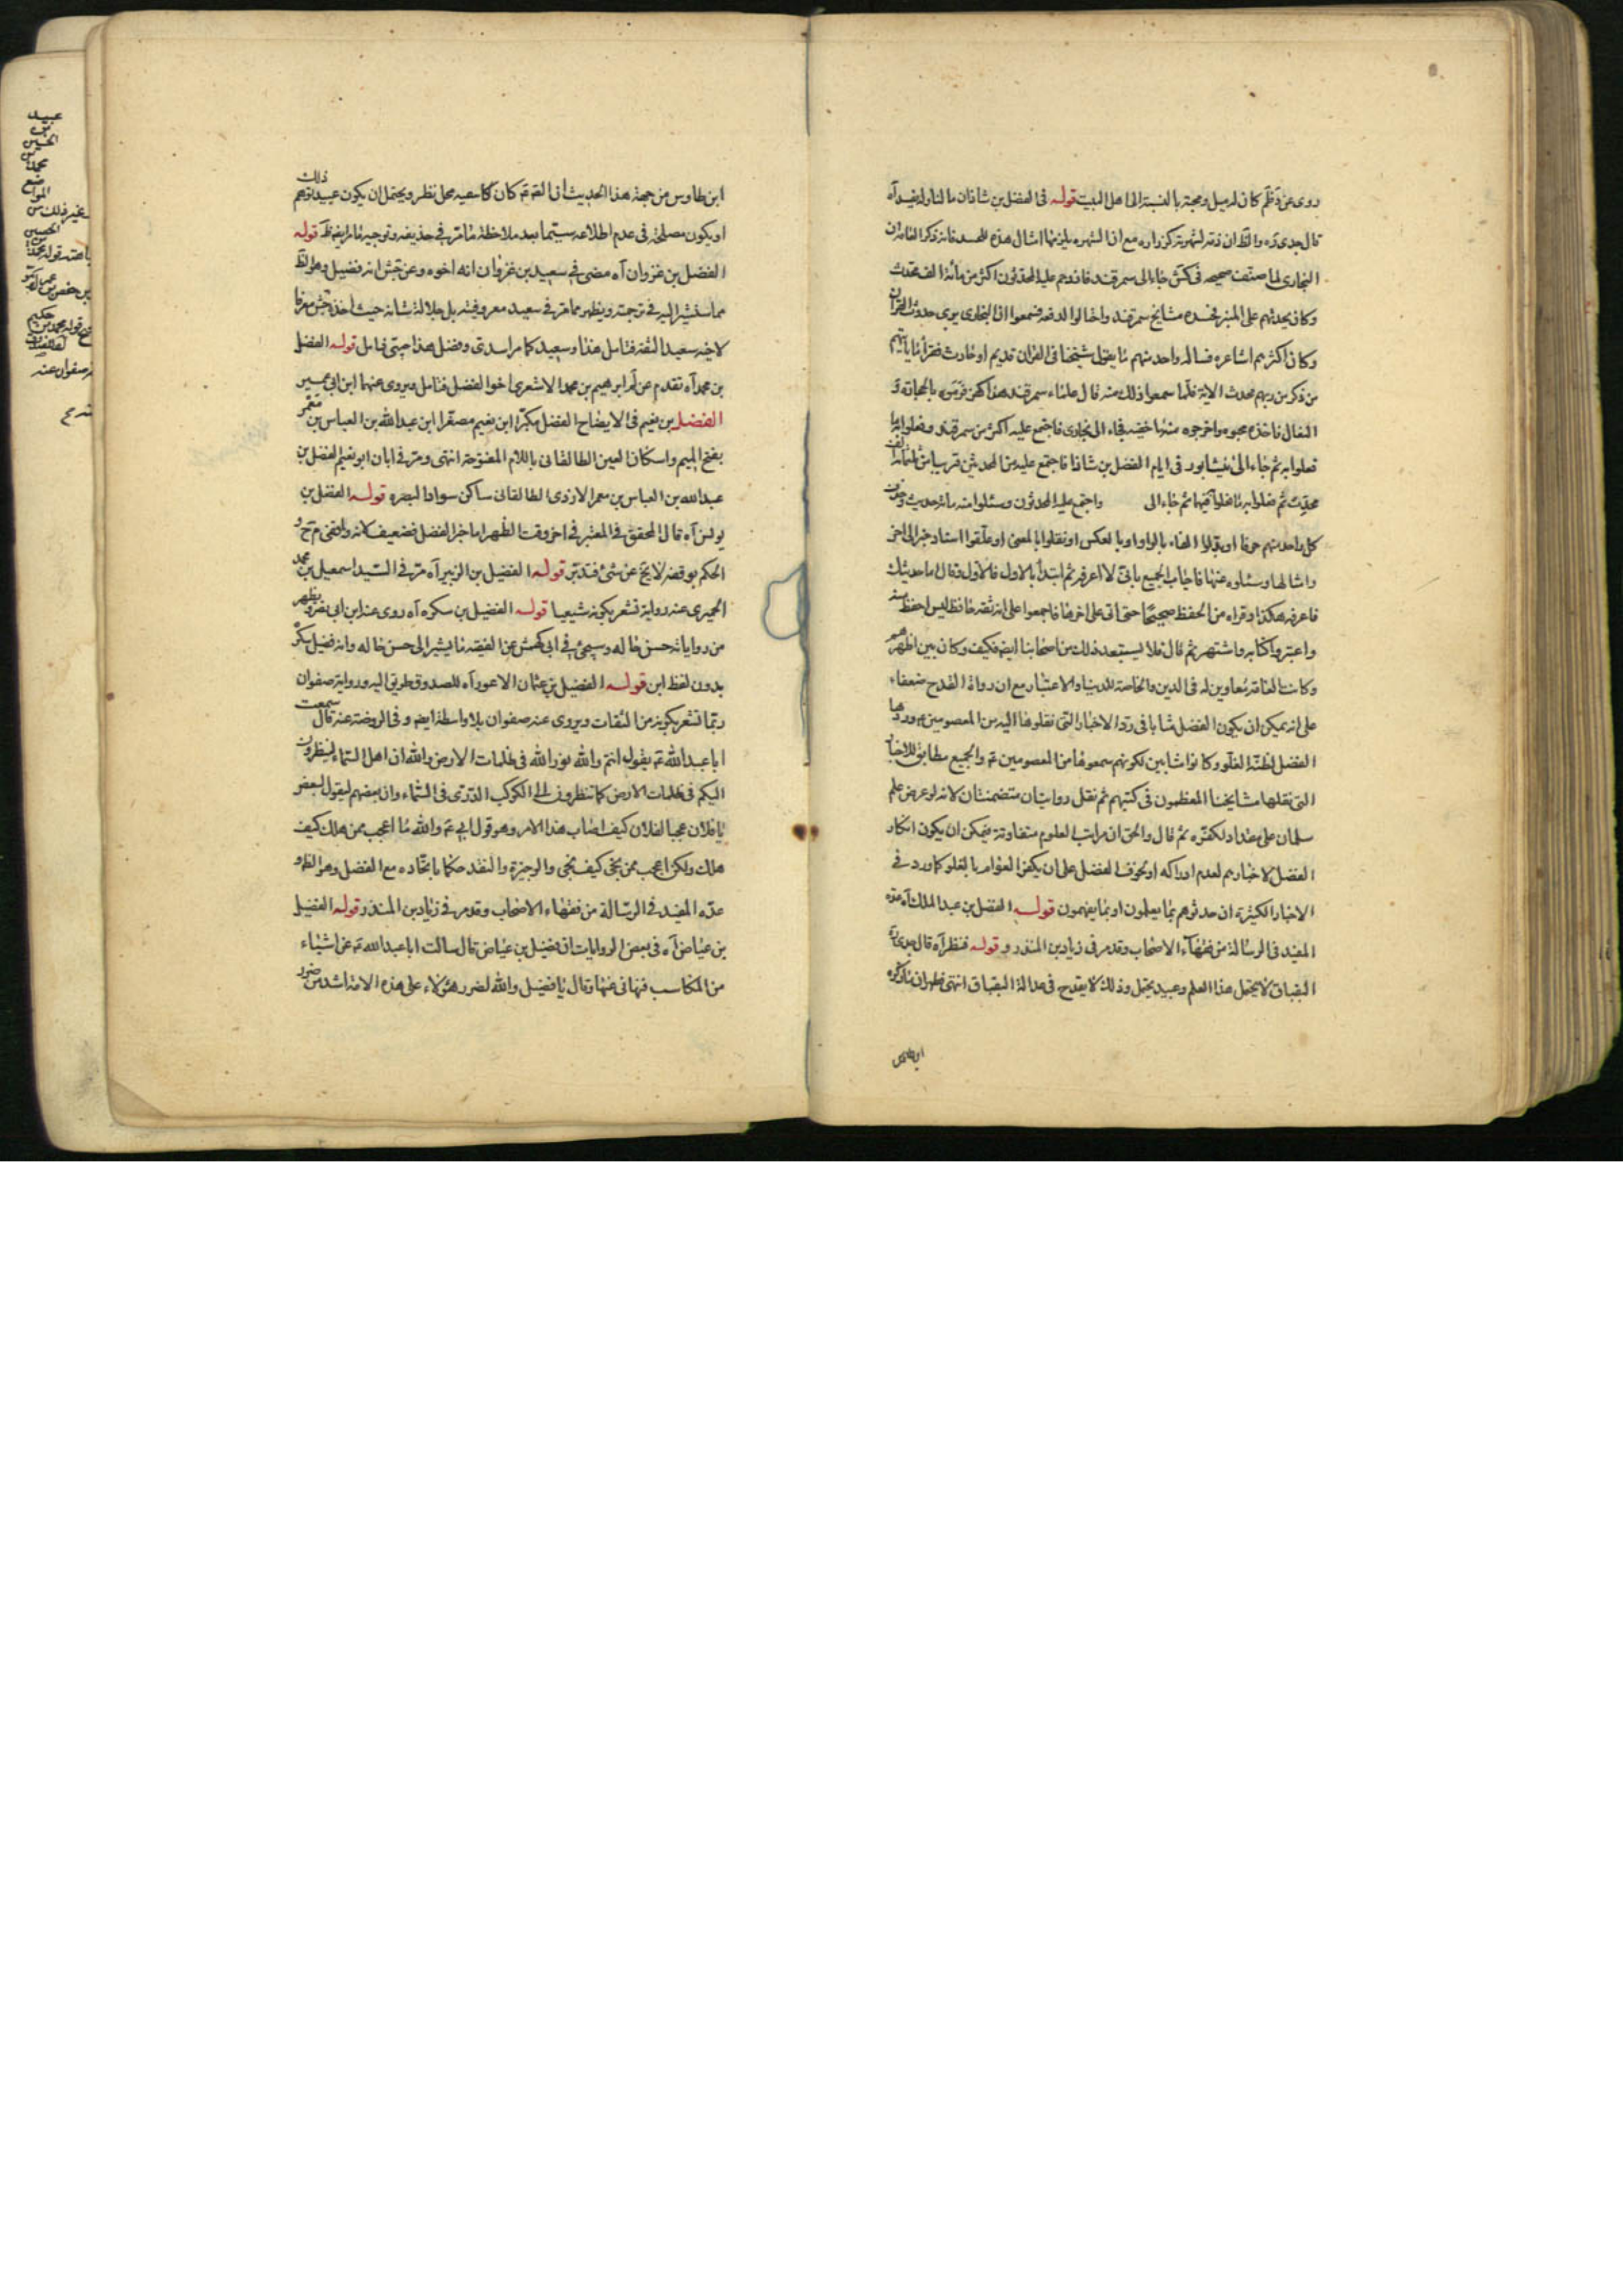 روى عن ظم كان له ميل ومحبة بالنسبة الى اهل البيت قوله فى الفضل بن شاذان
قال جدى ره والظ ان ذمه لشهرته كزراره مع ان الشهره يلزمها امثال هذه للحسد فانه ذكر العامه ان
البخارى لما صنف صحيحه فى كش جاء الى سمرقند فازدحم عليه المحدثون اكثر من مائة الف محدث
وكان يحدثهم على المنبر فحسده مشايخ سمرقند واحتالوا لدفعه فسمعوا ان البخارى يرى حدوث القران
وكان اكثرهم اشاعره فساله واحد منهم ما يقول شيخنا فى القران قديم او حادث فقرأ ما ياتيهم
من ذكر من ربهم محدث الاية فلما سمعوا ذلك منه قال علماء سمرقند هذا كفر فرموه بالحجارة و
النعال فاخذه محبوه واخرجوه منها خفيه فجاء الى بخارى فاجتمع عليه اكثر من سمرقند وفعلوا به ما
فعلوا به ثم جاء الى نيشابور فى ايام الفضل بن شاذان فاجتمع عليه من المحدثين قريبا من ثلثمائة الف
محدث ثم فعلوا به ما فعلوا فيها ثم جاء الى واجتمع عليه المحدثون وسئلوا منه مائة حديث وحرف
كل واحد منهم حرفا او بدلوا الفاء بالواو او بالعكس او نقلوا بالمعنى او علقوا اسناد خبر الى اخر
وامثالها وسئلوه عنها فاجاب الجميع بانى لا اعرفه ثم ابتدأ بالاول فالاول وقال اما حديثك
فاعرفه هكذا وقراه من الحفظ صحيحا حتى اتى على اخرها فاجمعوا على انه ثقة حافظ ليس احفظ منه
واعتبروا كتابه واشتهر ثم قال فلا يستبعد ذلك من اصحابنا ايضه فكيف وكان بين اظهرهم
وكانت العامة معاوين له فى الدين والخاصة للدنيا والاعتبار مع ان رواة القدح ضعفاء
على انه يمكن ان يكون الفضل مثابا فى رد الاخبار التى نقلوها اليه من المعصومين وردها
الفضل لظنه الغلو وكانوا مثابين لكونهم سمعوها من المعصومين ع والجميع مطابق للاخبار
التى نقلها مشايخنا المعظمون فى كتبهم ثم نقل روايتان متضمنتان لانه لو عرض علم
سلمان على مقداد لكفره ثم قال والحق ان مراتب العلوم متفاوتة فيمكن ان يكون انكار
الفضل لاخبارهم لعدم ادراكه او لخوف الفضل على ان يكفر العوام بالغلو كما ورد فى
الاخبار الكثيرة ان حدثوهم بما يعلمون او بما يفهمون قوله الفضل بن عبد الملك آه عده
المفيد فى الرسالة من فقهاء الاصحاب وقد مر فى زياد بن المنذر و قوله فنظر آه قال جدى ره
البقباق لا يحتمل هذا العلم وعبيد يحتمل وذلك لا يقدح فى عدالة البقباق انتهى فظهر ان ما ذكره
ابن طاوس
ابن طاوس من جهة هذا الحديث ان الفه ثم كان كاسعيه محل نظر ويحتمل ان يكون عبيد توهم ذلك
او يكون مصلحة فى عدم اطلاعه سيما بعد ملاحظة ما مر فى حذيفه وتوجيه ما مر ايضه ظ قوله
الفضل بن غزوان آه مضى فى سعيد بن غزوان انه اخوه وعن جش انه فضيل وهو الظ
مما سنشير اليه فى ترجمته ويظهر مما مر فى سعيد معروفيته بل جلالة شانه حيث اخذه جش معرفا
لاخيه سعيد الثقة فتامل هذا وسعيد كما مر اسدى وفضل هذا ضبى فتامل قوله الفضل
بن محمد آه تقدم عن لم ابرهيم بن محمد الاشعرى اخو الفضل فتامل ويروى عنهما ابن ابى عمير
الفضل بن نعيم فى الايضاح الفضل مكبرا ابن نعيم مصغرا ابن عبدالله بن العباس بن معمر
بفتح الميم واسكان العين الطالقانى باللام المفتوحة انتهى ومر فى ابان ابو نعيم الفضل بن
عبد الله بن العباس بن معمر الازدى الطالقانى ساكن سواد البصره قوله الفضل بن
يونس آه قال المحقق فى المعتبر فى اخر وقت الظهر اما خبر الفضل فضعيف لانه واقفى م ح و
الحكم بوقفه لا يخ عن شئ فتدبر قوله الفضيل بن الزبير آه مر فى السيد اسمعيل بن محمد
الحميرى عنه رواية تشعر بكونه شيعيا قوله الفضيل بن سكره آه روى عنه ابن ابى نصر ويظهر
من رواياته حسن حاله وسيجئ فى ابى كهمش عن الفقيه ما يشير الى حسن حاله وانه فضيل سكره
بدون لفظ ابن قوله الفضيل بن عثمان الاعور آه للصدوق طريق اليه ورواية صفوان
ربما تشعر بكونه من الثقات ويروى عنه صفوان بلا واسطة ايضه وفى الروضة عنه قال سمعت
ابا عبد الله ع يقول انتم والله نور الله فى ظلمات الارض والله ان اهل السماء لينظرون
اليكم فى ظلمات الارض كما تنظرون الى الكوكب الدرى فى السماء وان بعضهم ليقول لبعض
يا فلان عجبا لفلان كيف اصاب هذا الامر وهو قول ابى ع والله ما اعجب ممن هلك كيف
هلك ولكن اعجب ممن نجى كيف نجى والوجيزة والنقد حكما باتحاده مع الفضل وهو الظ و
عده المفيد فى الرسالة من فقهاء الاصحاب وقد مر فى زياد بن المنذر قوله الفضيل
بن عياض آه فى بعض الروايات ان فضيل بن عياض قال سالت ابا عبد الله ع عن اشياء
من المكاسب فنهانى عنها وقال يا فضيل والله لضرر هؤلاء على هذه الامة اشد من ضرر
عبيد
بن
الحسين
محمد